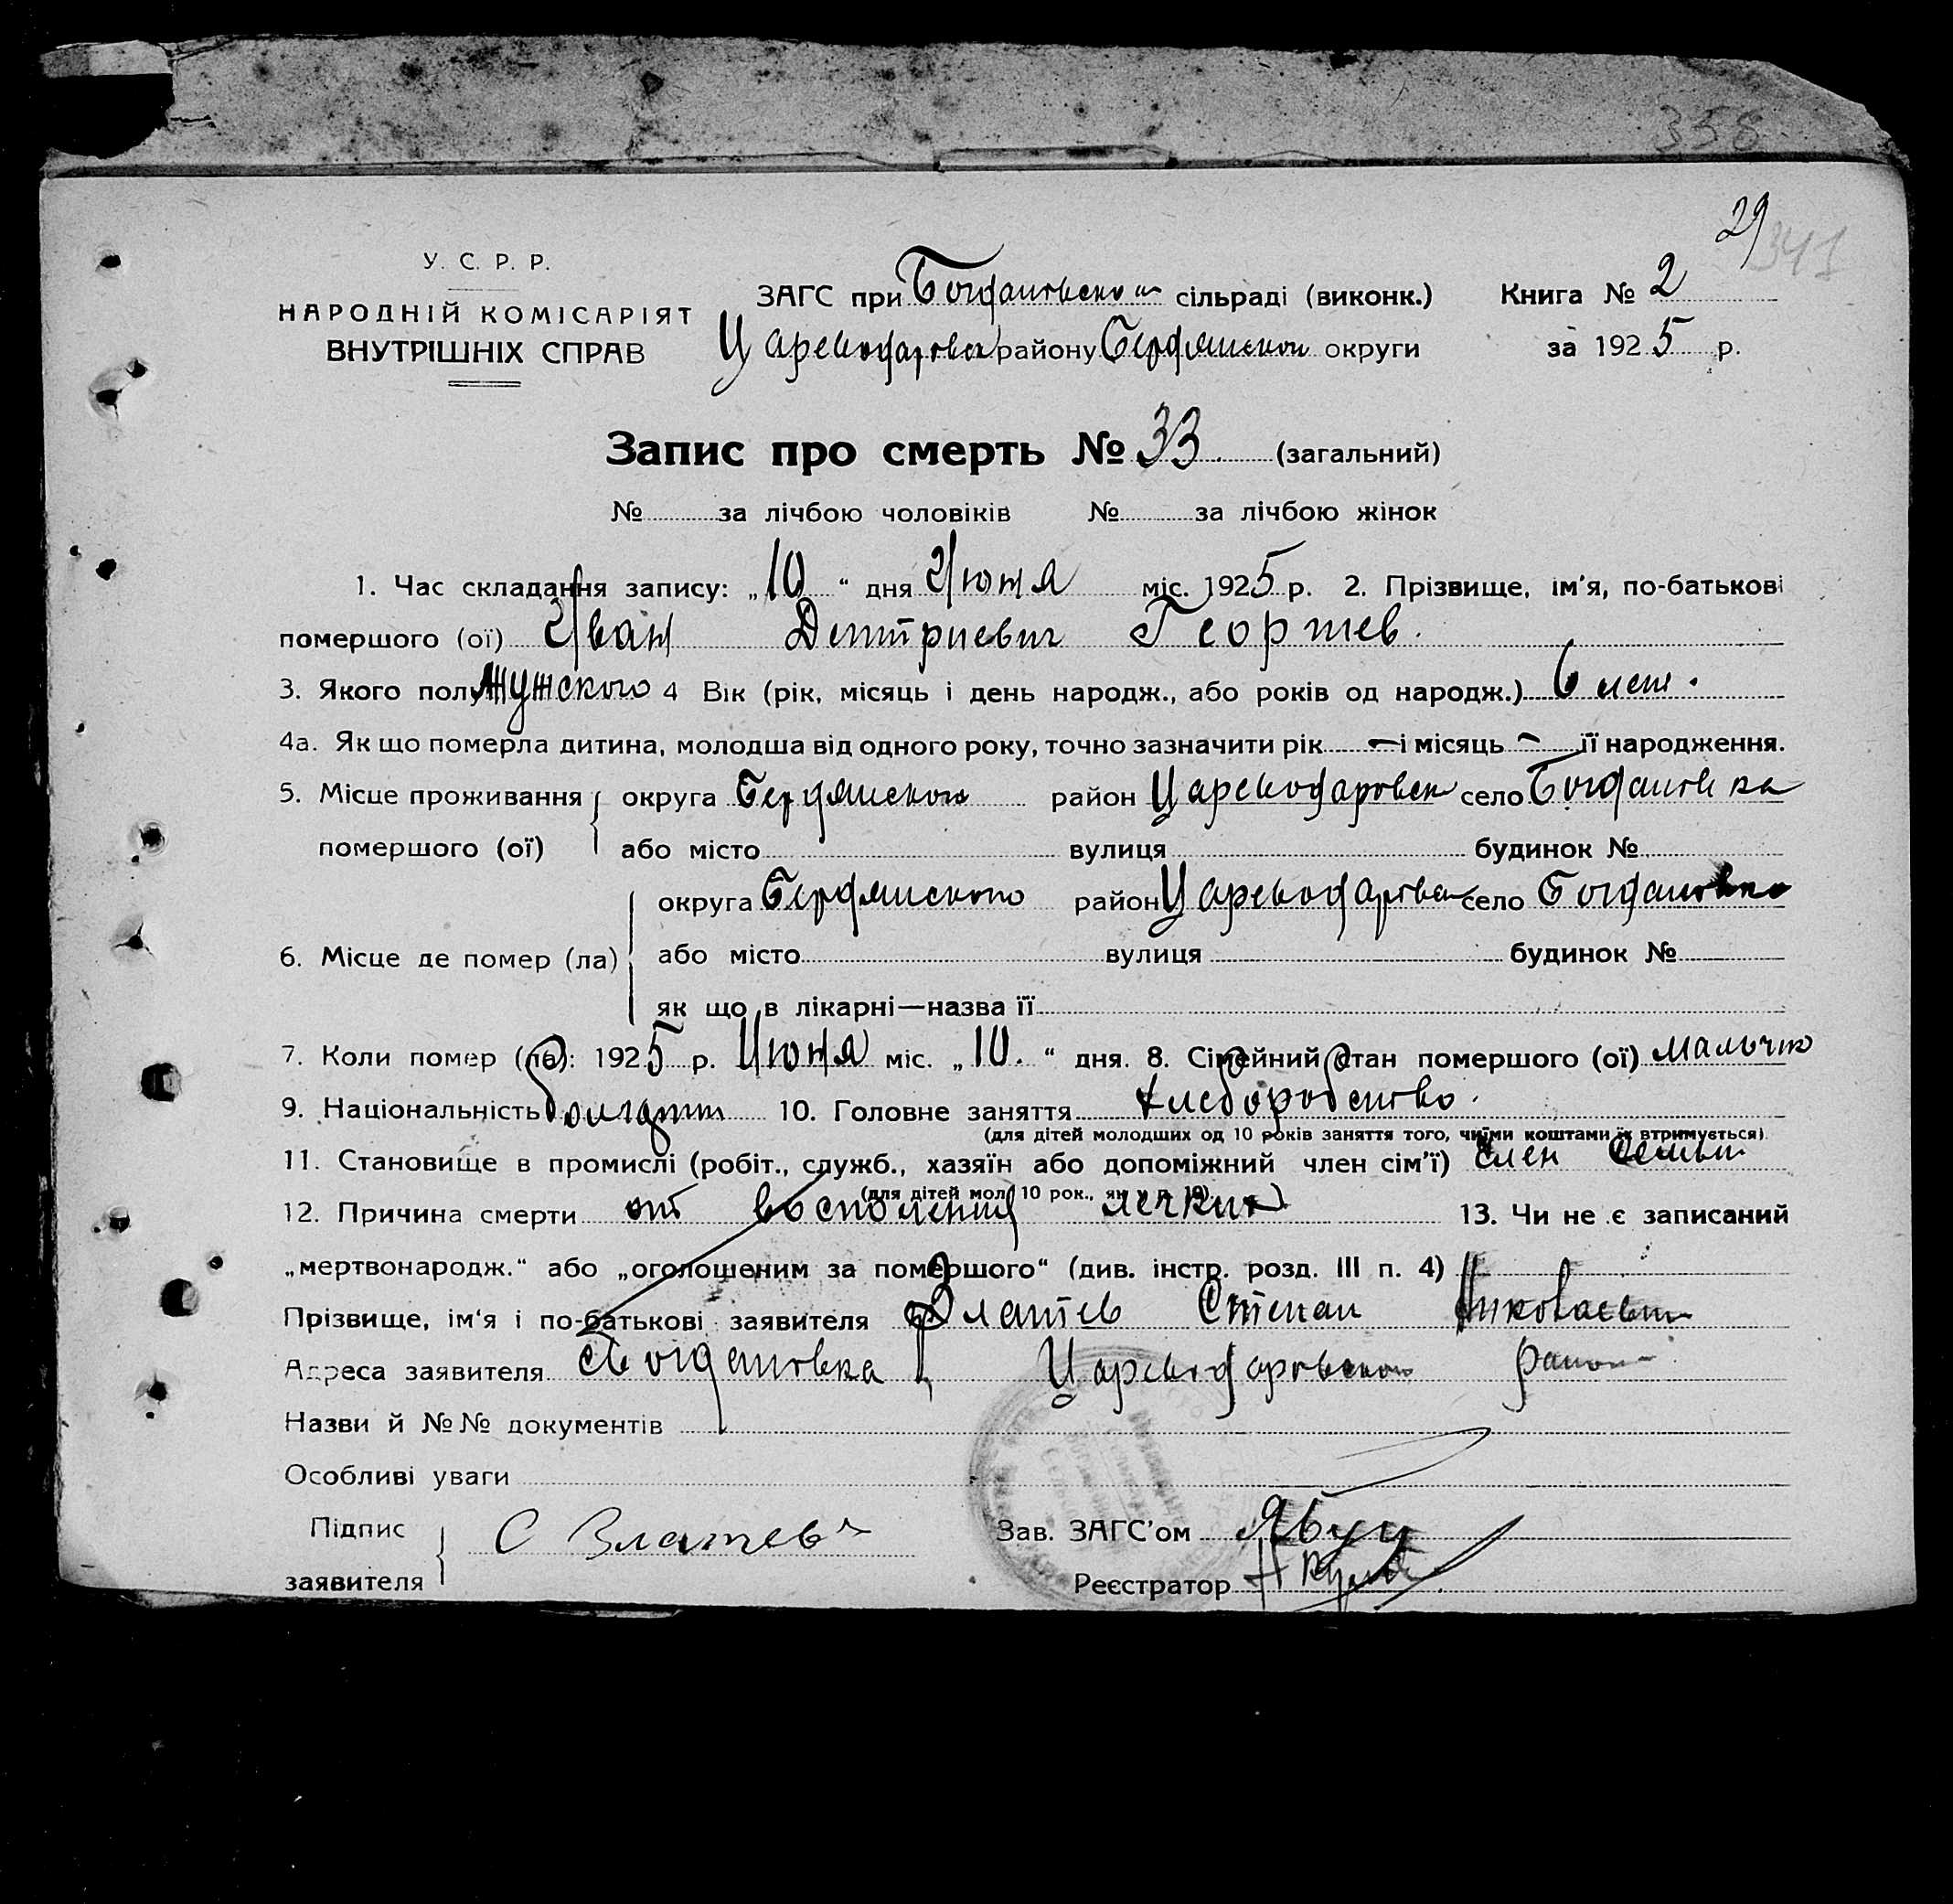 358
29
341
У. С. Р. Р.
НАРОДНІЙ КОМІСАРІЯТ
ВНУТРІШНІХ СПРАВ
ЗАГС при Богдановском сільраді (виконк.) Книга № 2
Цареводаровск району Бердянской округи за 1925 р.
Запис про смерть № 33 (загальний)
№ за лічбою чоловіків № за лічбою жінок
1. Час складання запису: „10“ дня Июня міс. 1925 р. 2. Прізвище, ім’я, по-батькові
помершого (ої) Иван Дмитриевич Георгиев.
3. Якого полу Мужского 4 Вік (рік, місяць і день народж., або років од народж.) 6 лет.
4а. Як що померла дитина, молодша від одного року, точно зазначити рік — і місяць - її народження.
5. Місце проживання округа Бердянского район Цареводаровск село Богдановка
помершого (ої) або місто вулиця будинок №
округа Бердянского район Цареводаровск село Богдановка
6. Місце де помер (ла) або місто вулиця будинок №
як що в лікарні—назва її
7. Коли помер (ла): 1925 р. Июня міс. „10.“ дня. 8. Сімейний стан помершого (ої)
9. Національність 10. Головне заняття Хлеборобство.
(для дітей молодших од 10 років заняття того, чиїми коштами їх втримується)
11. Становище в промислі (робіт., служб., хазяїн або допоміжний член сім’ї) Член Семьи
(для дітей мол. 10 рок., як у п. 10)
12. Причина смерти от восполения легких 13. Чи не є записаний
„мертвонародж.“ або „оголошеним за помершого“ (див. інстр. розд. III п. 4)
Прізвище, ім‘я і по-батькові заявителя Златев Степан Николаевич
Адреса заявителя Богдановка Цареводаровского район
Назви й №№ документів
Особливі уваги
Підпис С Златев Зав. ЗАГС’ом
заявителя Реєстратор